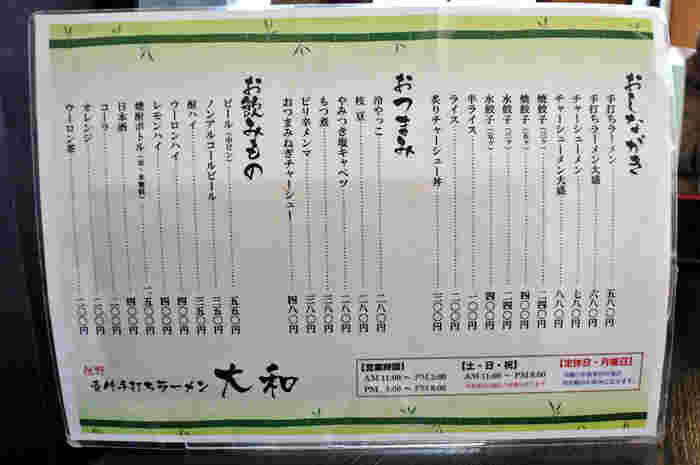 おしながき
手打ちラーメン 五八〇円
手打ちラーメン大盛 六八〇円
チャーシューメン 七八〇円
チャーシューメン大盛 八八〇円
焼餃子 二四〇円
焼餃子 四〇〇円
水餃子 二四〇円
水餃子 四〇〇円
半ライス 一〇〇円
ライス 一五〇円
炙りチャーシュー丼 三〇〇円
おつまみ
冷やっこ 二八〇円
枝豆 二八〇円
やみつき塩キャベツ 二八〇円
もつ煮 三八〇円
ピリ辛メンマ 三八〇円
おつまみねぎチャーシュー 四八〇円
お飲みもの
ビール（中ビン） 五五〇円
ノンアルコールビール 三五〇円
酎ハイ 三五〇円
ウーロンハイ 四〇〇円
レモンハイ 四〇〇円
焼酎ボトル 一、五〇〇円
日本酒 四〇〇円
コーラ 二〇〇円
オレンジ 二〇〇円
ウーロン茶 二〇〇円
佐野
青竹手打ちラーメン 大和
【営業時間】
AM 11:00 ～ PM 2:00
PM 5:00 ～ PM 8:00
【土・日・祝】
AM 11:00 ～ PM 8:00
【定休日・月曜日】